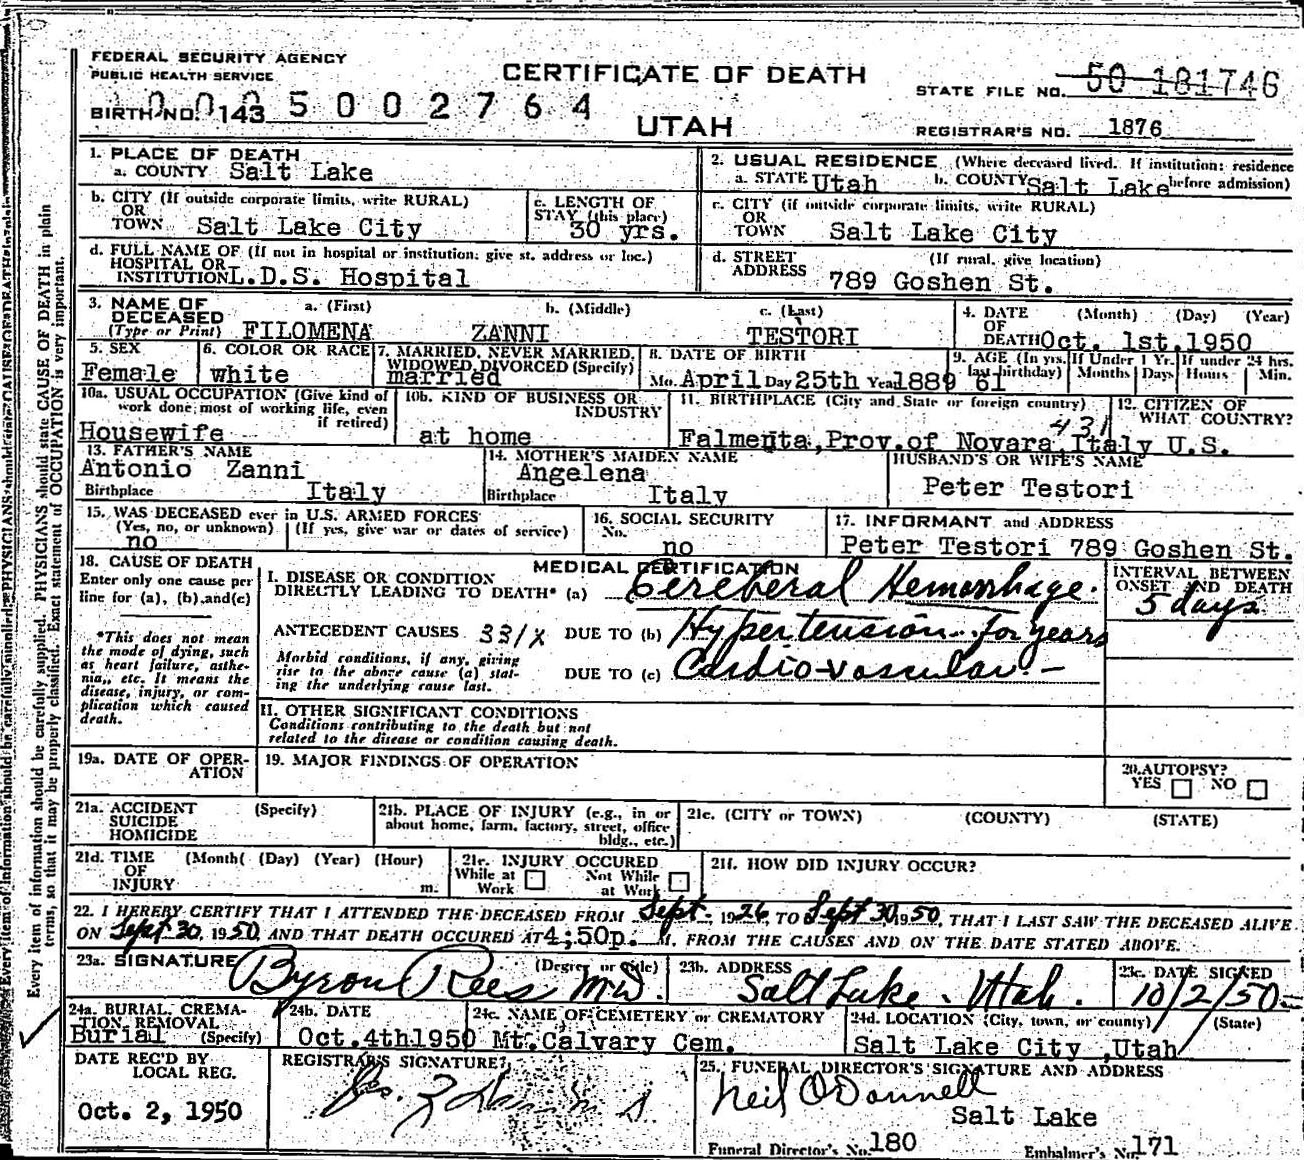 FEDERAL SECURITY AGENCY
PUBLIC HEALTH SERVICE
CERTIFICATE OF DEATH
STATE FILE NO. 50 181746
BIRTH NO. 143 5002764
UTAH
REGISTRAR'S NO. 1876
1. PLACE OF DEATH
a. COUNTY Salt Lake
2. USUAL RESIDENCE (Where deceased lived. If institution: residence before admission)
a. STATE Utah b. COUNTY Salt Lake
b. CITY (If outside corporate limits, write RURAL) OR TOWN Salt Lake City
c. LENGTH OF STAY (this place) 30 yrs.
c. CITY (if outside corporate limits, write RURAL) OR TOWN Salt Lake City
d. FULL NAME OF (If not in hospital or institution: give st. address or loc.) HOSPITAL OR INSTITUTION L.D.S. Hospital
d. STREET ADDRESS (If rural, give location) 789 Goshen St.
3. NAME OF DECEASED (Type or Print) a. (First) FILOMENA b. (Middle) ZANNI c. (Last) TESTORI
4. DATE OF DEATH (Month) (Day) (Year) Oct. 1st.1950
5. SEX Female
6. COLOR OR RACE white
7. MARRIED, NEVER MARRIED, WIDOWED, DIVORCED (Specify) married
8. DATE OF BIRTH Mo. April Day 25th Year 1889
9. AGE (In yrs. last birthday) 61 If Under 1 Yr. Months Days If under 24 hrs. Hours Min.
10a. USUAL OCCUPATION (Give kind of work done most of working life, even if retired) Housewife
10b. KIND OF BUSINESS OR INDUSTRY at home
11. BIRTHPLACE (City and State or foreign country) Falmenta, Prov. of Novara Italy 431
12. CITIZEN OF WHAT COUNTRY? U.S.
13. FATHER'S NAME Antonio Zanni
Birthplace Italy
14. MOTHER'S MAIDEN NAME Angelena
Birthplace Italy
HUSBAND'S OR WIFE'S NAME Peter Testori
15. WAS DECEASED ever in U.S. ARMED FORCES (Yes, no, or unknown) (If yes, give war or dates of service) no
16. SOCIAL SECURITY No. no
17. INFORMANT and ADDRESS Peter Testori 789 Goshen St.
18. CAUSE OF DEATH
Enter only one cause per line for (a), (b), and (c)
*This does not mean the mode of dying, such as heart failure, asthenia, etc. It means the disease, injury, or complication which caused death.
MEDICAL CERTIFICATION
I. DISEASE OR CONDITION DIRECTLY LEADING TO DEATH* (a) Cereberal Hemorrhage.
INTERVAL BETWEEN ONSET AND DEATH 5 days
ANTECEDENT CAUSES 331X DUE TO (b) Hypertension for years
Morbid conditions, if any, giving rise to the above cause (a) stating the underlying cause last.
DUE TO (c) Cardio-vascular.-
II. OTHER SIGNIFICANT CONDITIONS
Conditions contributing to the death but not related to the disease or condition causing death.
19a. DATE OF OPERATION
19. MAJOR FINDINGS OF OPERATION
20. AUTOPSY? YES NO
21a. ACCIDENT SUICIDE HOMICIDE (Specify)
21b. PLACE OF INJURY (e.g., in or about home, farm, factory, street, office bldg., etc.)
21c. (CITY or TOWN) (COUNTY) (STATE)
21d. TIME OF INJURY (Month) (Day) (Year) (Hour) m.
21e. INJURY OCCURED While at Work Not While at Work
21f. HOW DID INJURY OCCUR?
22. I HEREBY CERTIFY THAT I ATTENDED THE DECEASED FROM Sept. 1926, TO Sept 30 1950, THAT I LAST SAW THE DECEASED ALIVE
ON Sept 30, 1950, AND THAT DEATH OCCURED AT 4;50p. M. FROM THE CAUSES AND ON THE DATE STATED ABOVE.
23a. SIGNATURE (Degree or title) Byron Rees MD.
23b. ADDRESS Salt Lake, Utah.
23c. DATE SIGNED 10/2/50
24a. BURIAL, CREMATION, REMOVAL (Specify) Burial
24b. DATE Oct.4th1950
24c. NAME OF CEMETERY or CREMATORY Mt.Calvary Cem.
24d. LOCATION (City, town, or county) (State) Salt Lake City, Utah
DATE REC'D BY LOCAL REG. Oct. 2, 1950
REGISTRAR'S SIGNATURE
25. FUNERAL DIRECTOR'S SIGNATURE AND ADDRESS Neil O'Donnell
Salt Lake
Funeral Director's No. 180 Embalmer's No. 171
Every item of information should be carefully supplied. PHYSICIANS should state CAUSE OF DEATH in plain terms, so that it may be properly classified. Exact statement of OCCUPATION is very important.